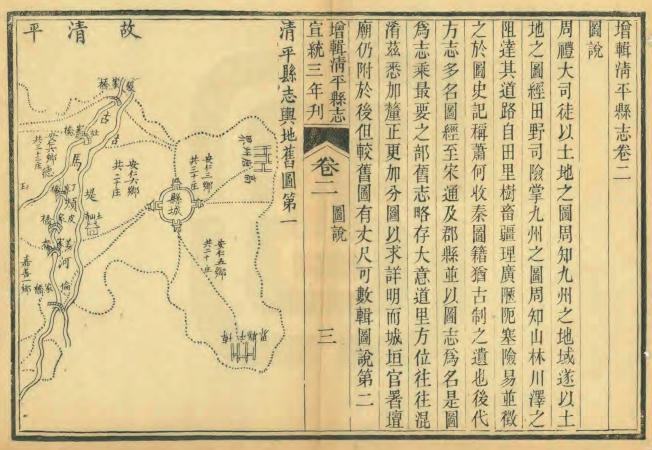 增輯淸平縣志卷二
圖說
周禮大司徒以土地之圖周知九州之地域遂以土
地之圖經田野司險掌九州之圖周知山林川澤之
阻達其道路自田里樹畜疆理廣陿阨塞險易並徵
之於圖史記稱蕭何收秦圖籍猶古制之遺也後代
方志多名圖經至宋通及郡縣並以圖志爲名是圖
爲志乘最要之部舊志略存大意道里方位往往混
淆茲悉加釐正更加分圖以求詳明而城垣官署壇
廟仍附於後但較舊圖有丈尺可數輯圖說第二
增輯淸平縣志
宣統三年刋
卷二
圖說
三
淸平縣志輿地舊圖第一
故清平
縣城
安仁三鄉
共二十庄
安仁五鄉
共二十庄
安仁六鄉
共二十庄
馬
頰
河
古
堤
嘉吾鄉
博平縣界